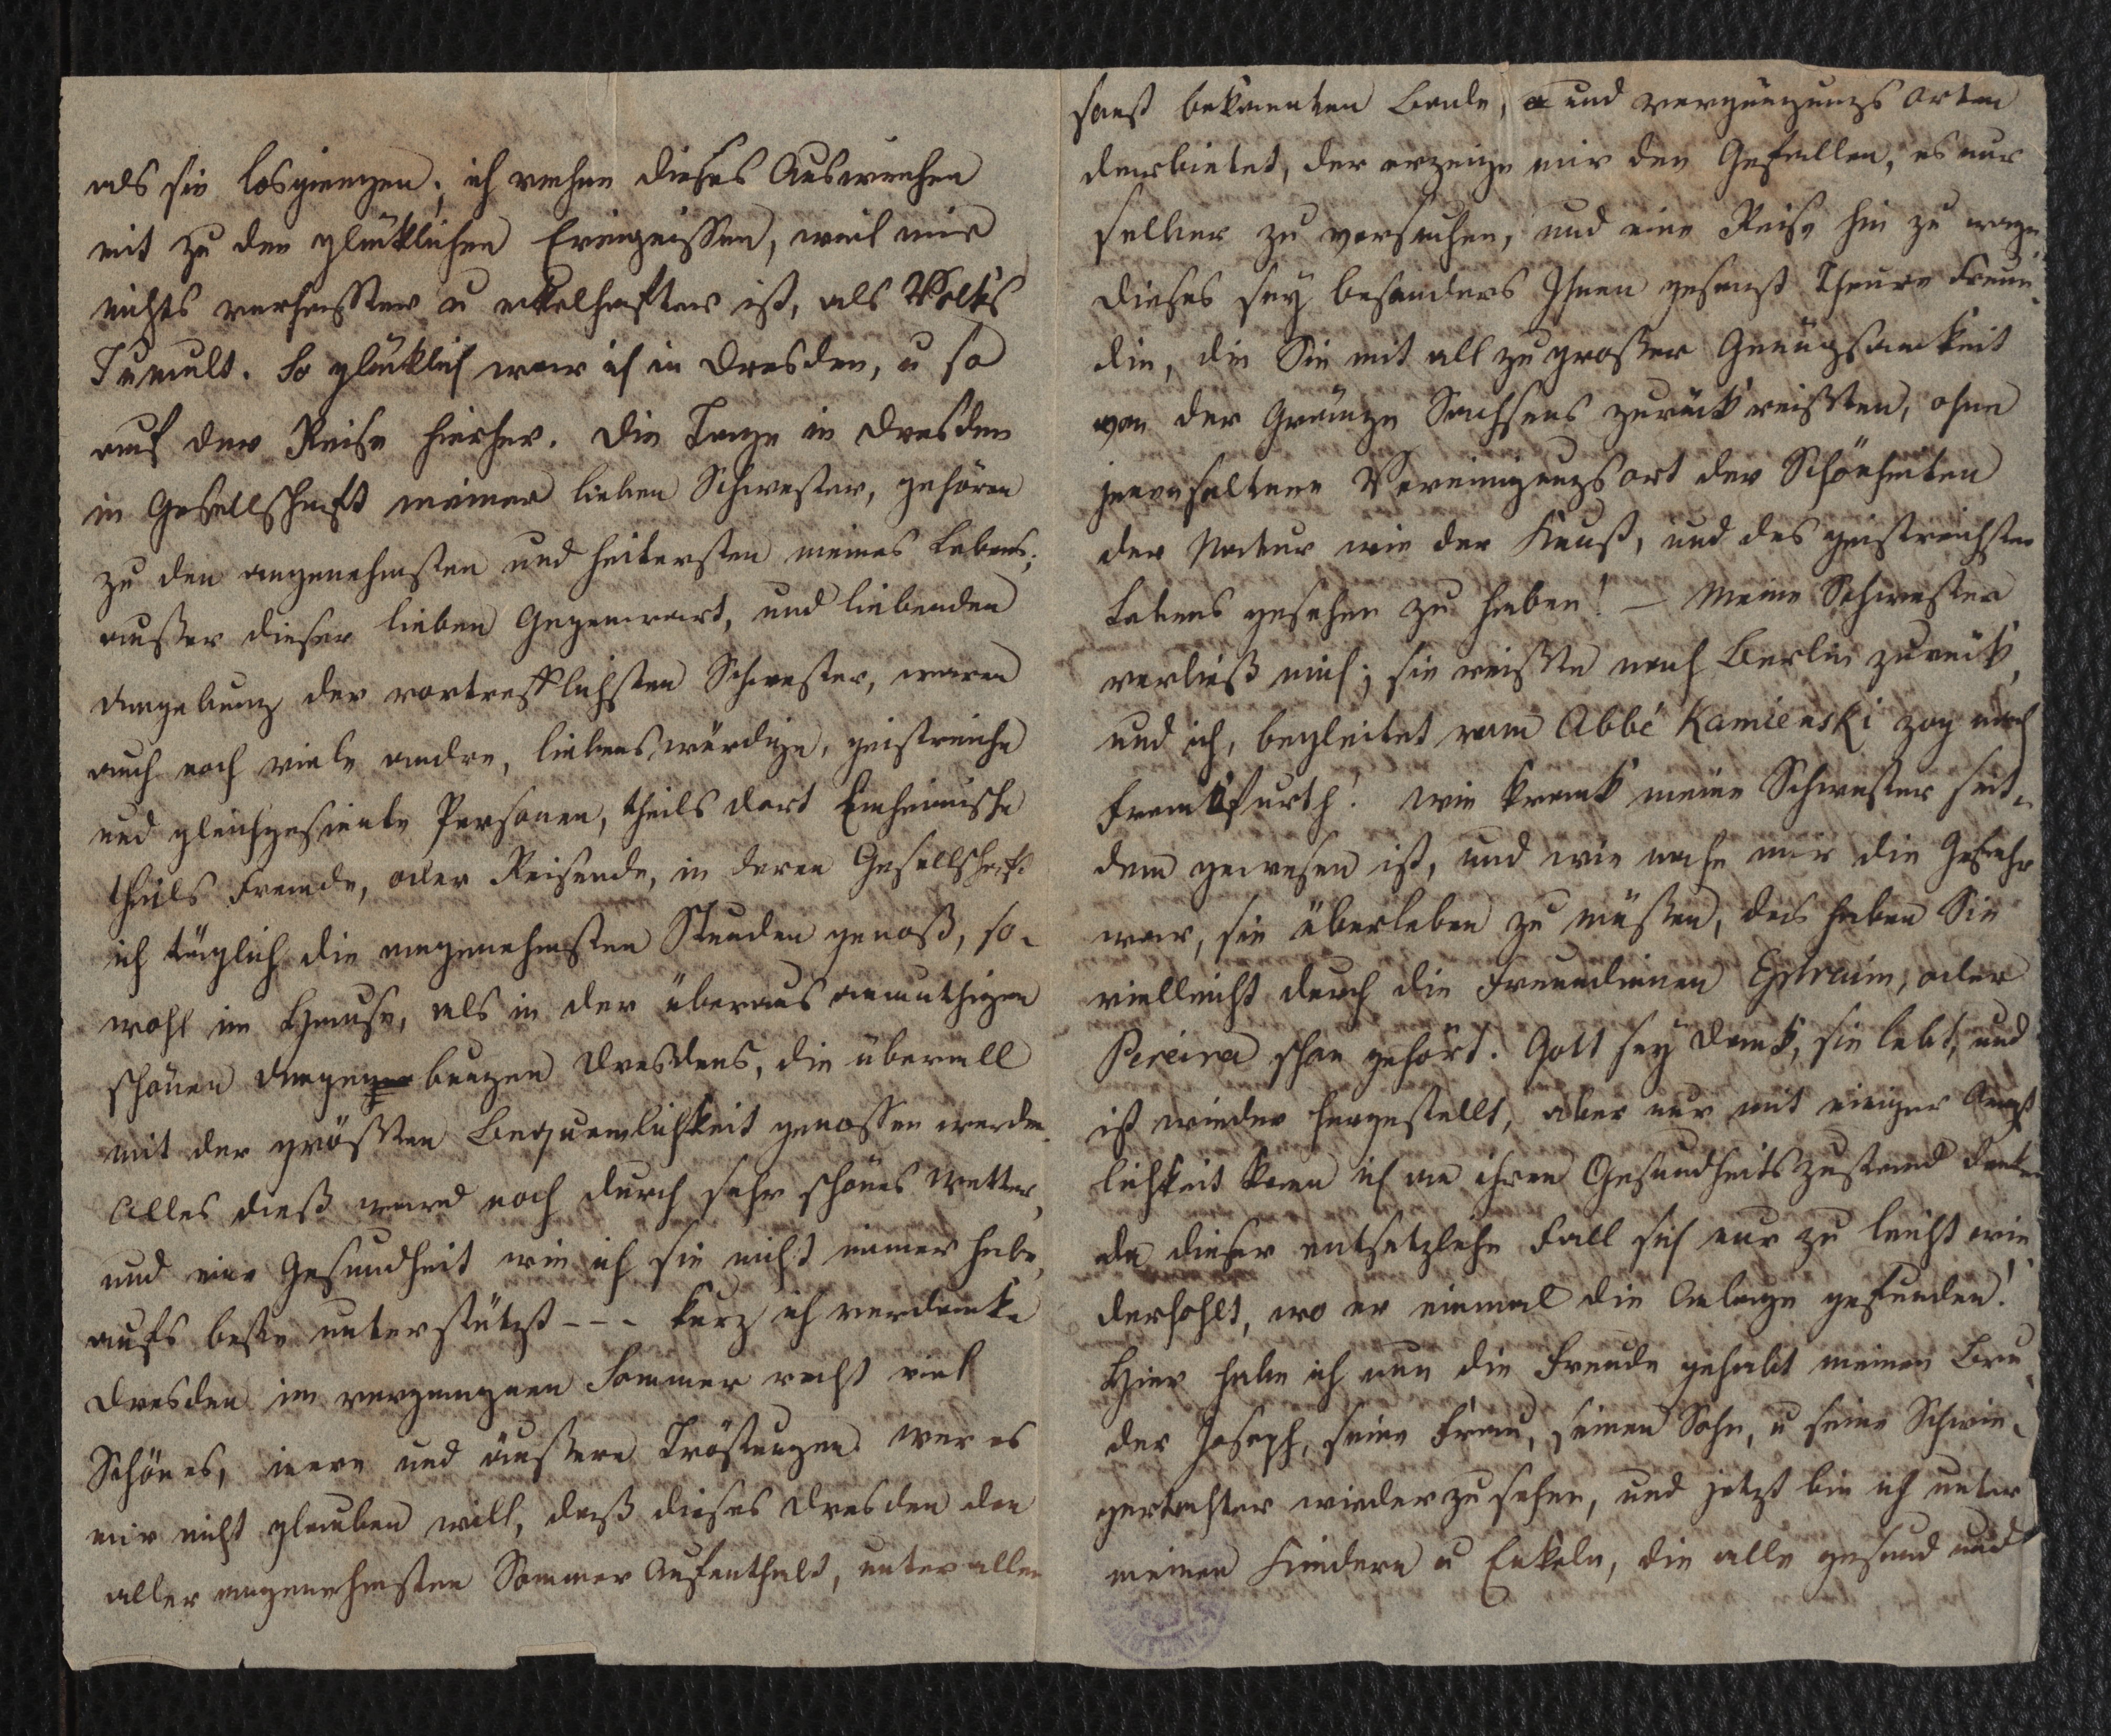 als sie losgiengen; ich rechne dieses Ausweichen
mit zu den glücklichen Ereignissen, weil mir
nichts verhasster u ekelhafter ist, als Volks
Tumult. So glücklich war ich in Dresden, u so
auf der Reise hierher. Die Tage in Dresden
in Gesellschaft meiner lieben Schwester, gehören
zu den angenehmsten und heitersten meines Lebens;
ausser dieser lieben Gegenwart, und liebenden
Umgebung der vortrefflichsten Schwester, waren
auch noch viele andre, liebenswürdige, geistreiche
und gleichgesinnte Personen, theils dort Einheimische
theils Fremde, oder Reisende, in deren Gesellschaft
ich täglich die angenehmsten Stunden genoß, so-
wohl im Hause, als in der überaus anmuthigen
schönen Umgegebungen Dresdens, die überall
mit der grössten Bequemlichkeit genossen werden.
Alles dieß ward noch durch sehr schönes Wetter,
und eine Gesundheit wie ich sie nicht immer habe,
aufs beste unterstützt --- kurz ich verdanke
Dresden im vergangnen Sommer recht viel
Schönes, innre und äussere Tröstungen. Wer es
mir nicht glauben will, daß dieses Dresden den
aller angenehmsten Sommer Aufenthalt, unter allen
sonst bekannten Bade, und vergnügungs Orten
darbietet, der erzeige mir den Gefallen, es nur
selber zu versuchen, und eine Reise hin zu wagen
dieses sey besonders Ihnen gesagt Theure Freun-
din, die Sie mit all zu grosser Genügsamkeit
von der Gränze Sachsens zurück reissten, ohne
jenen seltnen Vereinigungsort der Schönheiten
der Natur wie der Kunst, und des geistreichsten
Lebens gesehen zu haben! – Meine Schwester
verließ mich; sie reisste nach Berlin zurück,
und ich, begleitet vom Abbé Kamienski zog nach
Frankfurth! Wie krank meine Schwester seit-
dem gewesen ist, und wie nahe mir die Gefahr
war, sie überleben zu müssen, das haben Sie
vielleicht durch die Freundinnen Ephraim, oder
Pereira schon gehört. Gott sey Dank, sie lebt, und
ist wieder hergestellt, aber nur mit einiger Ängst
lichkeit kann ich an ihren Gesundheitszustand denken
da dieser entsetzliche Fall sich nur zu leicht wie-
derhohlt, wo er einmal die Anlage gefunden!
Hier habe ich nun die Freude gehabt meinen Bru-
der Joseph, seine Frau, seinen Sohn, u seine Schwie-
gertochter wiederzusehen, und jetzt bin ich unter
meinen Kindern u Enkeln, die alle gesund und